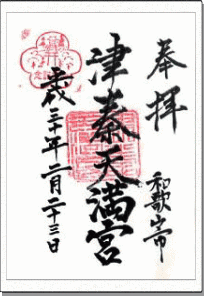 奉拝
和歌山市
津秦天満宮
三十年二月二十三日